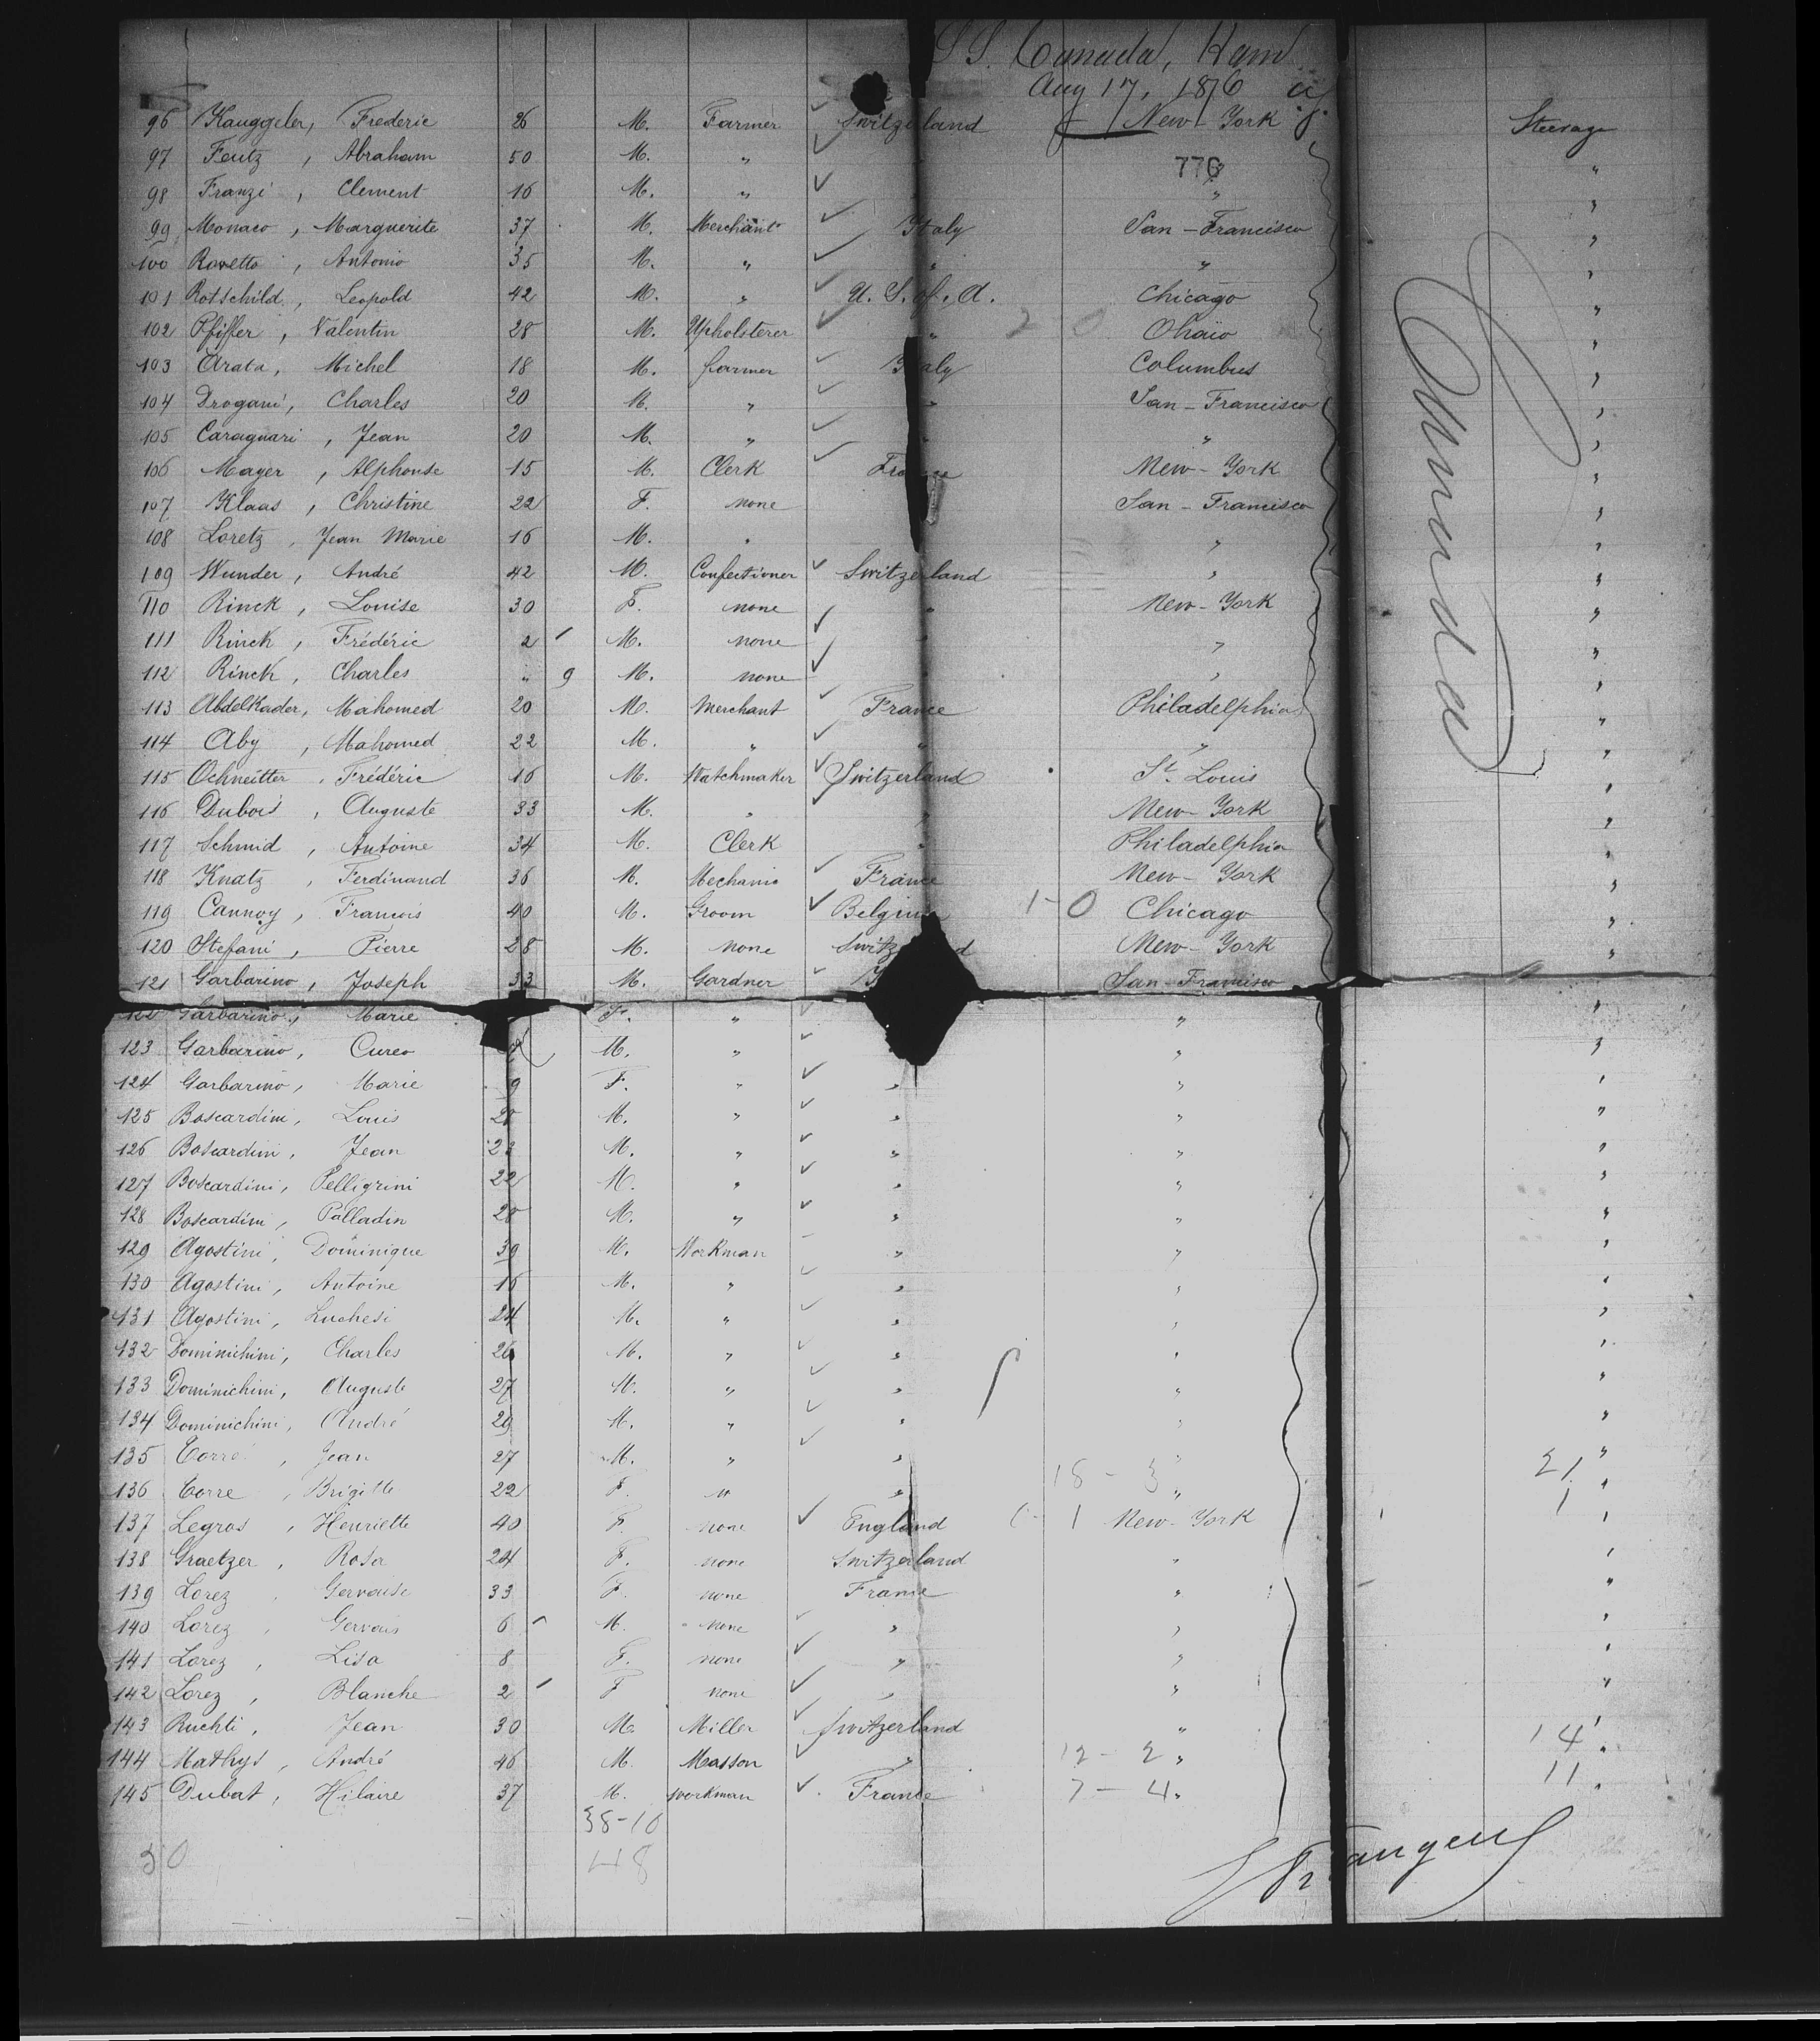 SS. Canada, Ham
Aug 17, 1876
96 Kauggeler, Frederic 26 M. Farmer Switzerland New-York Steerage
776
97 Feutz, Abraham 50 M. " "
98 Franzi, Clement 16 M. " " "
99 Monaco, Marguerite 37 M. Merchant Italy San-Francisco "
100 Rovetto, Antonio 35 M. " " " "
101 Rotschild, Leopold 42 M. " U. S. of. A. Chicago "
102 Pfiffer, Valentin 28 M. Upholsterer " Ohaïo "
103 Arata, Michel 18 M. farmer Italy Columbus "
104 Drogani, Charles 20 M. " " San-Francisco "
105 Caragnari, Jean 20 M. " " " "
106 Mayer, Alphonse 15 M. Clerk France New-York "
107 Klaas, Christine 22 F. none San-Francisco "
108 Loretz, Jean Marie 16 M. " " "
109 Wunder, André 42 M. Confectioner Switzerland " "
110 Rinck, Louise 30 F. none " New-York "
111 Rinck, Frédéric 2 M. none " " "
112 Rinck, Charles " 9 M. none " "
113 Abdelkader, Mahomed 20 M. Merchant France Philadelphia "
114 Aby, Mahomed 22 M. " " " "
115 Ochneitter, Frédéric 16 M. Watchmaker Switzerland St. Louis "
116 Dubois, Auguste 33 M. " " New-York "
117 Schmid, Antoine 34 M. Clerk " Philadelphia "
118 Knatz, Ferdinand 36 M. Mechanic France New-York "
119 Cannoy, Francois 40 M. Groom Belgium 1-0 Chicago "
120 Stefani, Pierre 28 M. none Switzerland New-York "
121 Garbarino, Joseph 33 M. Gardner San-Francisco
122 Garbarino, Marie F. " " "
123 Garbarino, Cureo M. " " "
124 Garbarino, Marie 9 F. " " " "
125 Boscardini, Louis M. " " " "
126 Boscardini, Jean 23 M. " " " "
127 Boscardini, Pelligrini 22 M. " " " "
128 Boscardini, Palladin 28 M. " " " "
129 Agostini, Dominique 39 M. Workman " " "
130 Agostini, Antoine 16 M. " " " "
131 Agostini, Luchesi 24 M. " " " "
132 Dominichini, Charles 26 M. " " " "
133 Dominichini, Auguste 27 M. " " " "
134 Dominichini, André 29 M. " " " "
135 Corre, Jean 27 M. " " " "
136 Corre, Brigitte 22 F. " " 18-3 " 21 "
137 Legros, Henriette 40 F. none England 1 New-York 1 "
138 Graetzer, Rosa 24 F. none Switzerland " "
139 Lorez, Gervaise 33 F. none France " "
140 Lorez, Gervais 6 M. none " " "
141 Lorez, Lisa 8 F. none " " "
142 Lorez, Blanche 2 F none " " "
143 Ruchti, Jean 30 M. Miller Switzerland " "
144 Mathys, André 46 M. Masson " 12-2 " 14 "
145 Dubat, Hilaire 37 M. workman France 7-4 " 11 "
38-10
50 48